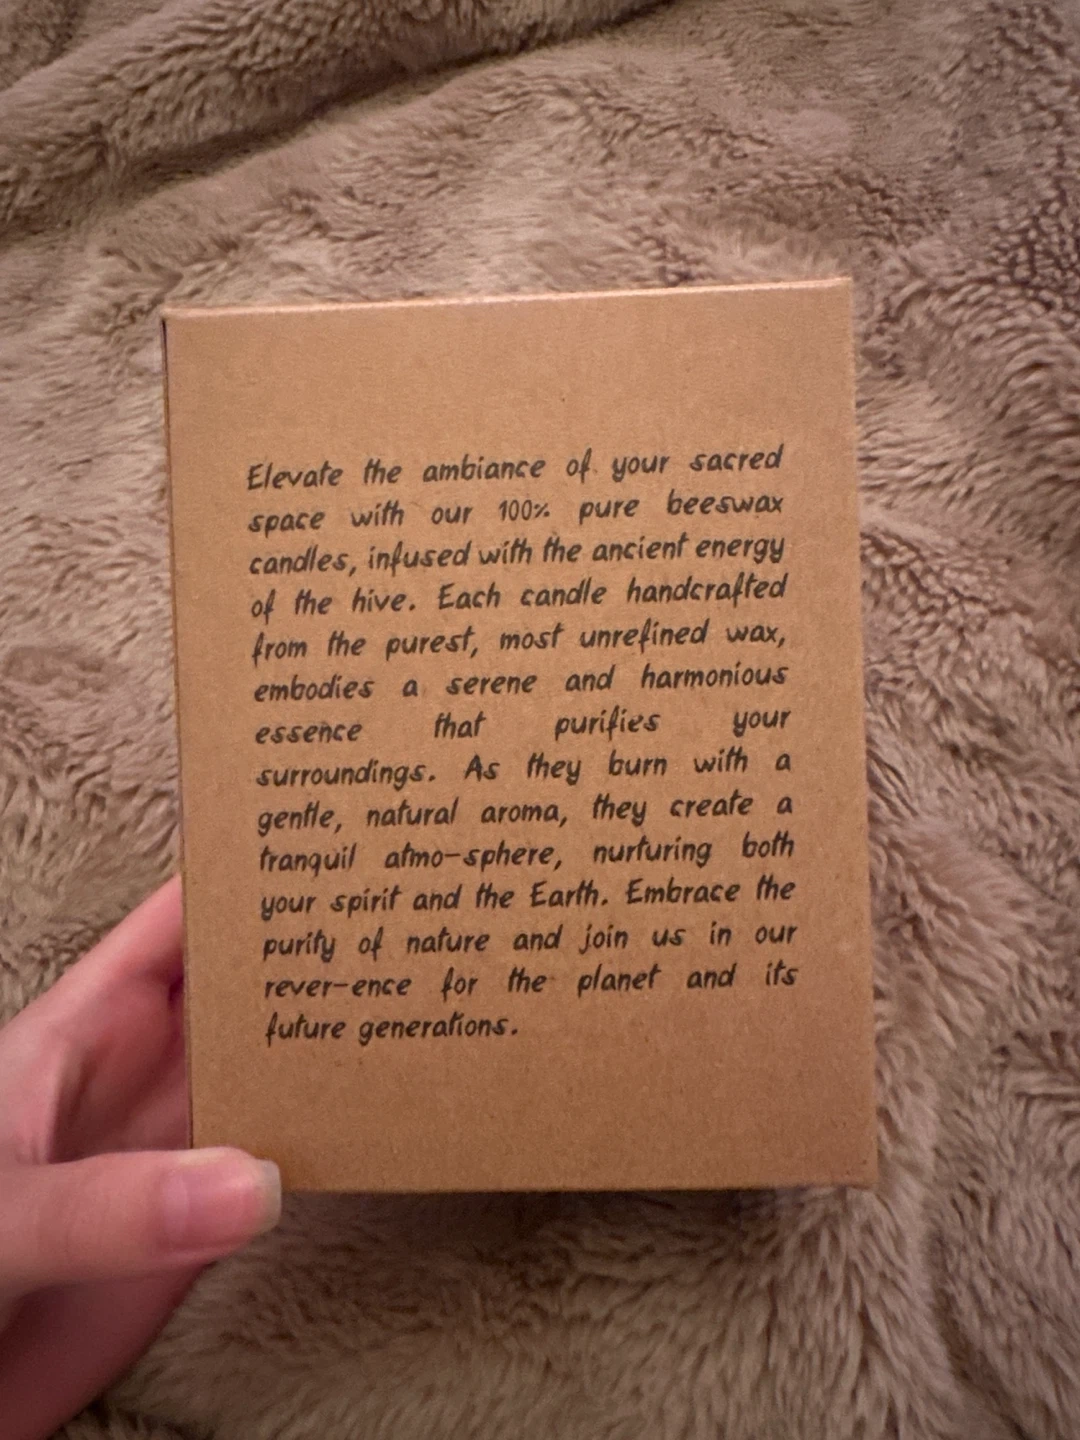 Elevate the ambiance of your sacred
space with our 100% pure beeswax
candles, infused with the ancient energy
of the hive. Each candle handcrafted
from the purest, most unrefined wax,
embodies a serene and harmonious
essence that purifies your
surroundings. As they burn with a
gentle, natural aroma, they create a
tranquil atmo-sphere, nurturing both
your spirit and the Earth. Embrace the
purity of nature and join us in our
rever-ence for the planet and its
future generations.